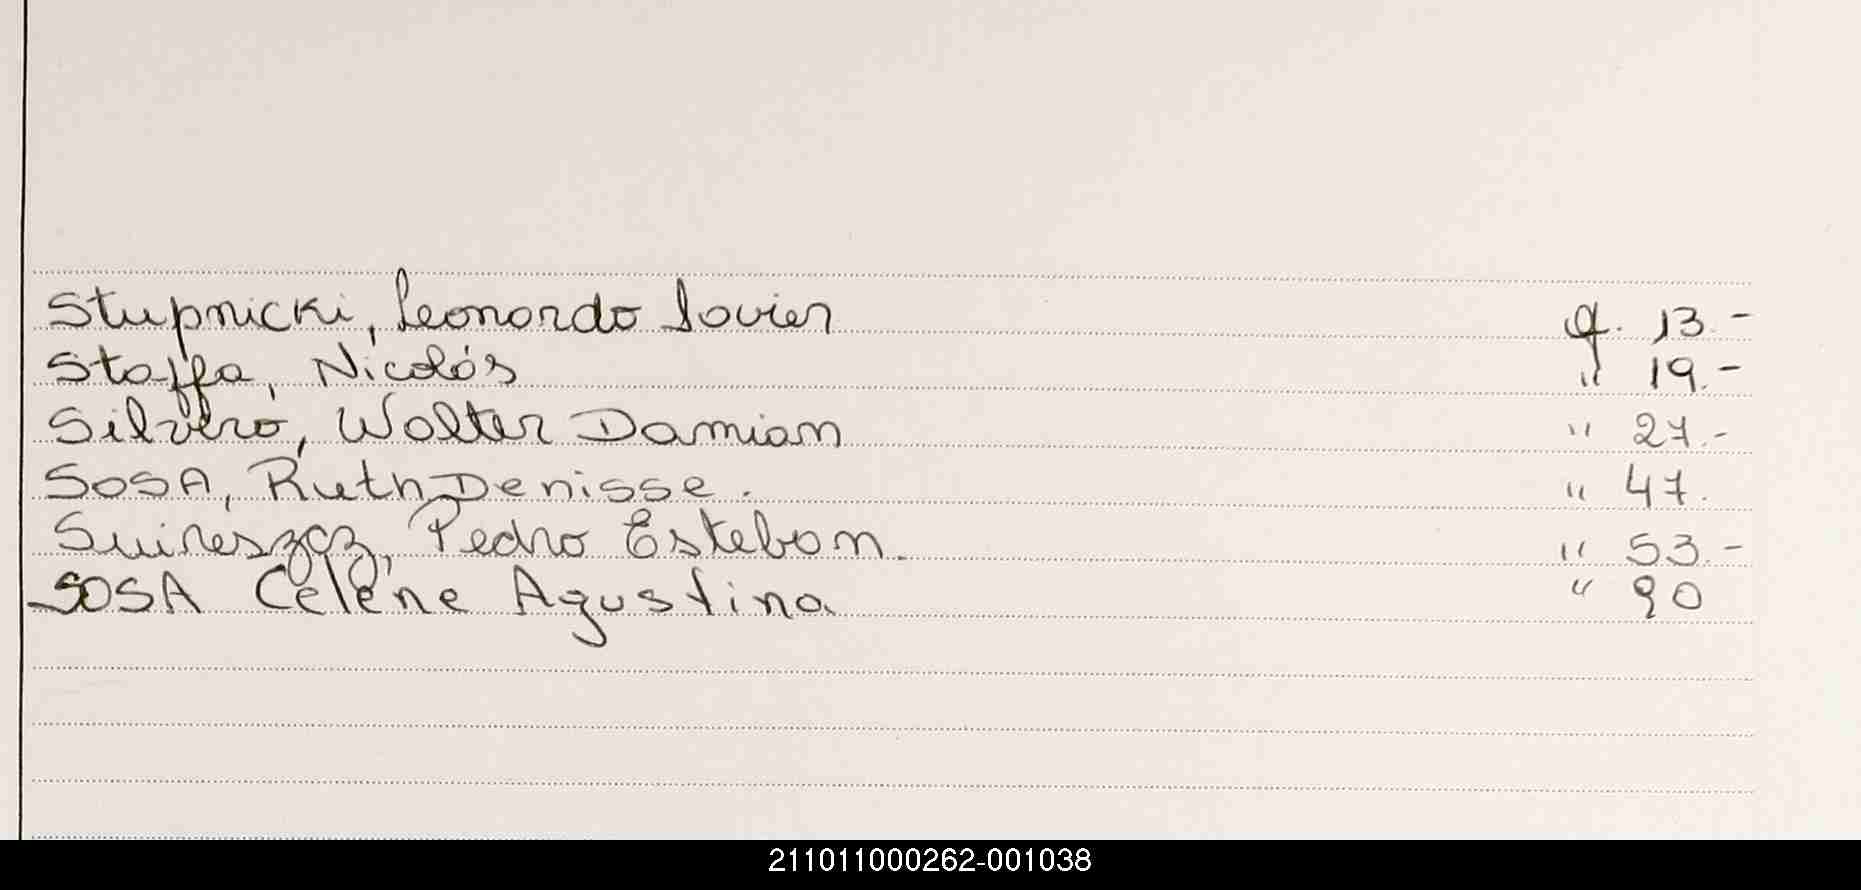 Stupnicki, Leonardo Javier q. 13.-
Staffa, Nicolás " 19.-
Silvero, Walter Damian " 27.-
SOSA, Ruth Denisse. " 47.
Pedro Esteban. " 53.-
SOSA Celene Agustina " 90
211011000262-001038